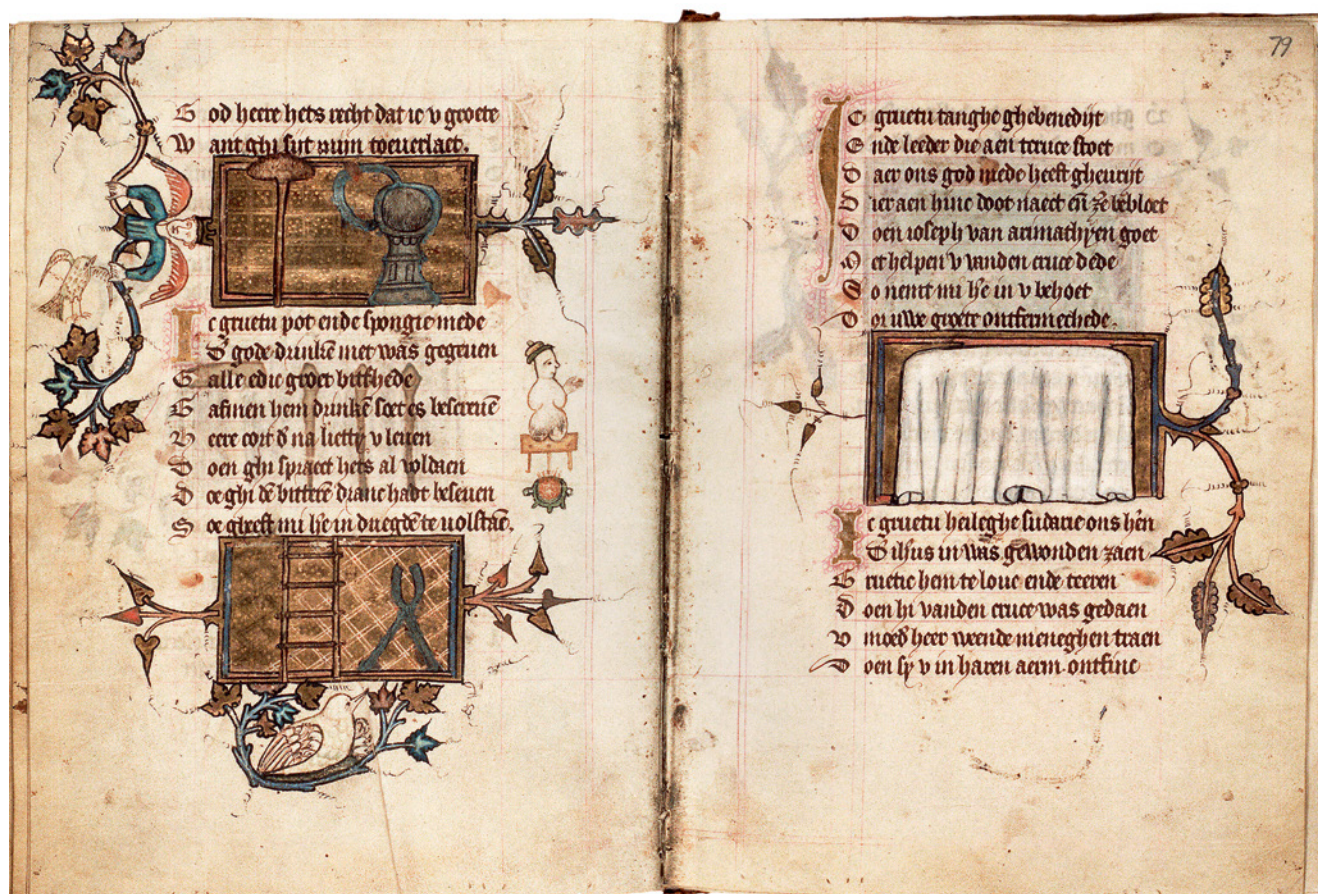 G od heere hets recht dat ic v groete
W ant ghi syt myn toeuerlaet.
I c gruetu pot ende spongie mede
D gode drunkē met was gegeuen
G alle edic groet bittĥede
G afmen hem drunkē soet es bescreuē
H eere cort d na lietty v leuen
D oen ghi spraect hets al voldaen
D oe ghi dē bitterē dranc hadt beseuen
S oe gheeft mi he in duegdē te volstaē.
79
I C gruetu tanghe ghebenedijt
E nde leeder die aen tcruce stoet
D aer ons god mede heeft gheurijt
D ier aen hinc doot naect eñ zē bebloet
D oen ioseph van arimathyen goet
M et helpen v vanden cruce dede
S o nemt mi he in v behoet
D or uwe groete ontfermechede.
I c gruetu heileghe sudarie ons hēn
D ihūs in was gewonden zaen
G ruetic hem te loue ende teeren
D oen hi vanden cruce was gedaen
V moed heer weende meneghen traen
D oen sy v in haren aerm ontfinc